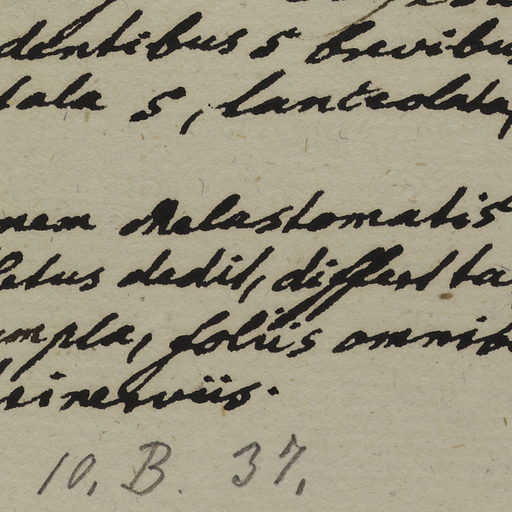 dentibus 5 brevibu
tala 5, lanceolata,
nem Melastomatis
letus dedit, differt ta
mpla, foliis omnib
rinerviis.
10. B. 37.